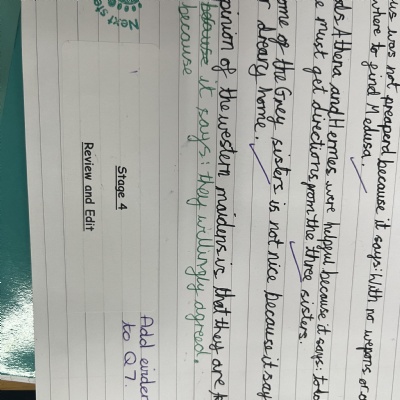 us was not preaperd because it says: With no wepons or
where to find Medusa.
ds Athena and Hermes were helpful because it says: to do
e must get directions from the three sisters.
ome of the Grey sisters is not nice because it say
r dreary home.
pinion of the western maidens is that they are
because it says: they willingly agreed.
because
Next steps
Stage 4
Review and Edit
Add eviden
to Q7.